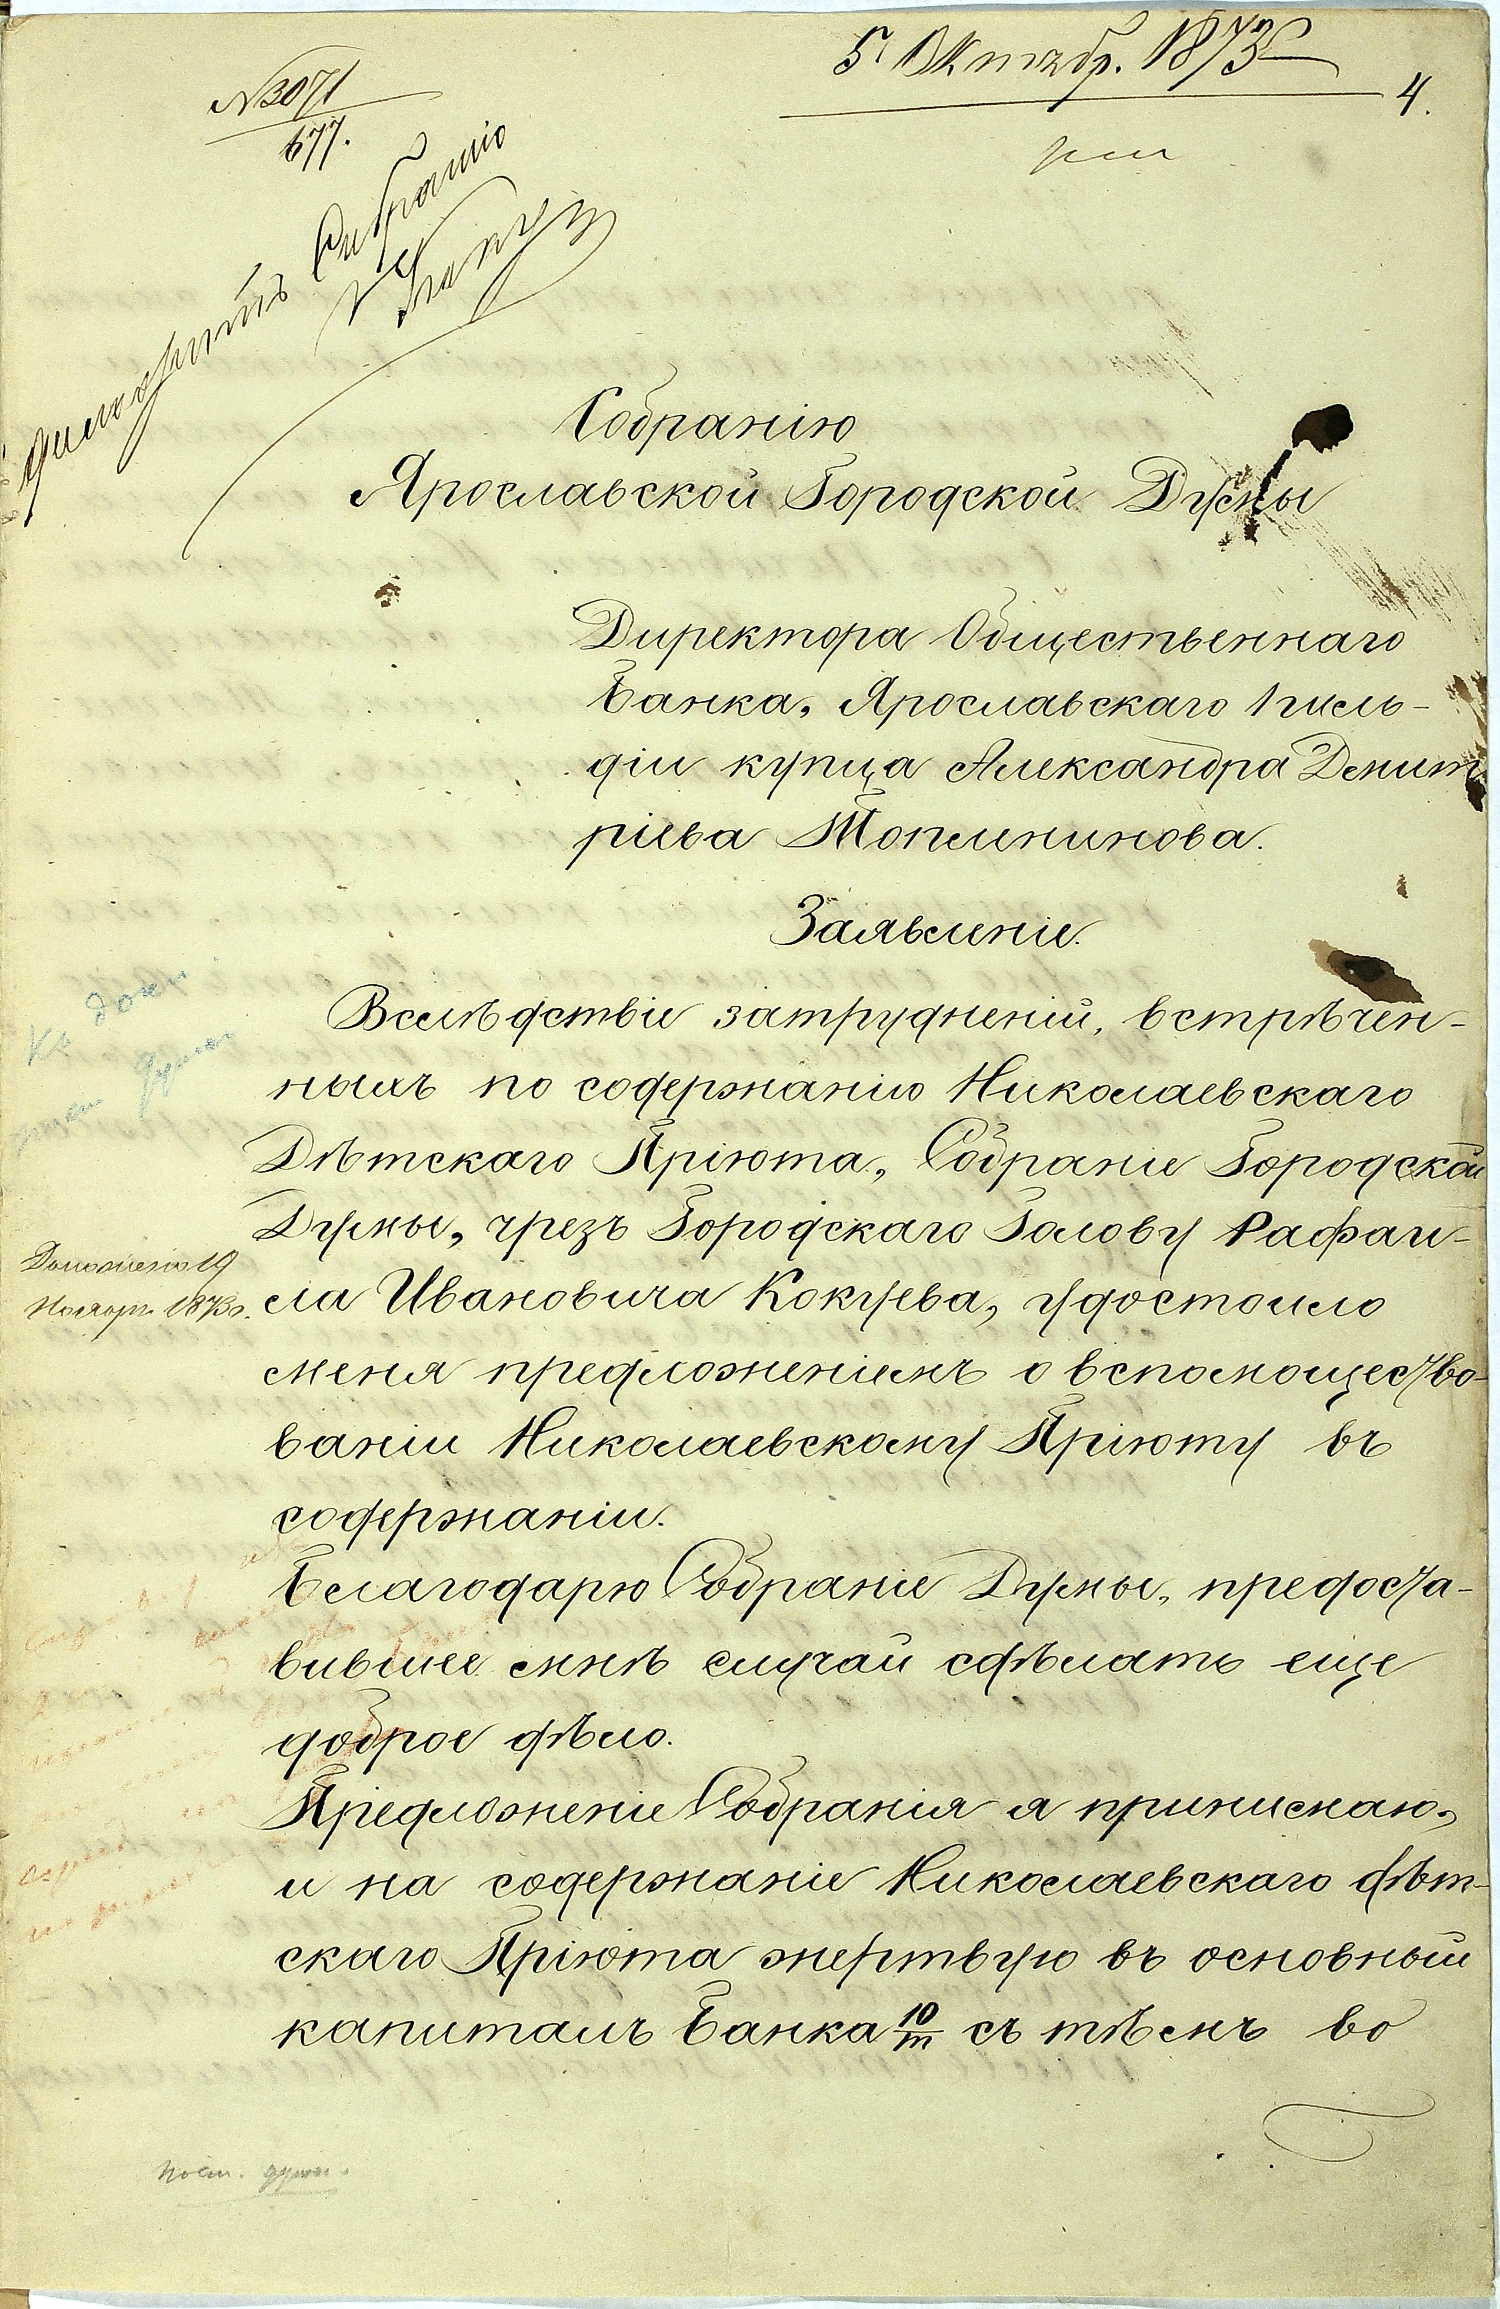 № 3071
677.
5 Октябр. 1873
4.
Собранію
Собранію
Ярославской Городской Думы
Директора Общественнаго
Банка, Ярославскаго 1 гиль-
діи купца Александра Дмит
ріева Топленинова.
Заявленіе.
Вслѣдствіе затрудненій, встрѣчен-
ныхъ по содержанію Николаевскаго
Дѣтскаго Пріюта, Собраніе Городской
Думы, чрезъ Городскаго Голову Рафаи-
ла Ивановича Кокуева, удостоило
меня предложеніемъ о вспомощество-
ваніи Николаевскому Пріюту въ
содержаніи.
Благодарю Собраніе Думы, предоста-
вившее мнѣ случай сдѣлать еще
доброе дѣло.
Предложеніе Собранія я принимаю,
и на содержаніе Николаевскаго дѣт-
скаго Пріюта жертвую въ основный
капиталъ Банка 10/т съ тѣмъ во
Доложено 19
Ноябр. 1873 г.